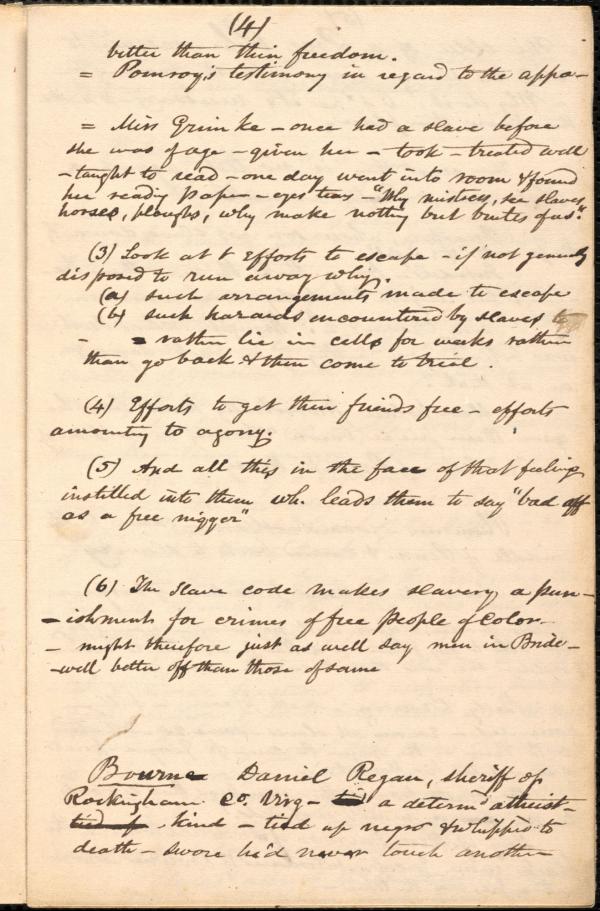 (4)
better than their freedom.
= Pomroy's testimony in regard to the appa-
= Miss Grimke - once had a slave before
she was of age - given her - took - treated well
- taught to read - one day went into room & found
her reading paper - eyes tears - "Why mistress, see slaves,
horses, ploughs, why make nothing but brutes of us."
(3) Look at t efforts to escape - if not generally
disposed to run away why.
(a) such arrangements made to escape
(b) such hazards encountered by slaves to
- = rather lie in cells for weeks rather
than go back & then come to trial.
(4) Efforts to get their friends free - efforts
amounting to agony.
(5) And all this in the face of that feeling
instilled into them wh. leads them to say "bad off
as a free nigger"
(6) The slave code makes slavery a pun-
-ishment for crimes of free people of color.
- might therefore just as well say men in Bride-
-well better off than those of same
Bourne Daniel Regan, sheriff of
Rockingham Co. Virg - tied a determd atheist -
tied up, kind - tied up negro & whipped to
death - swore he'd never touch another